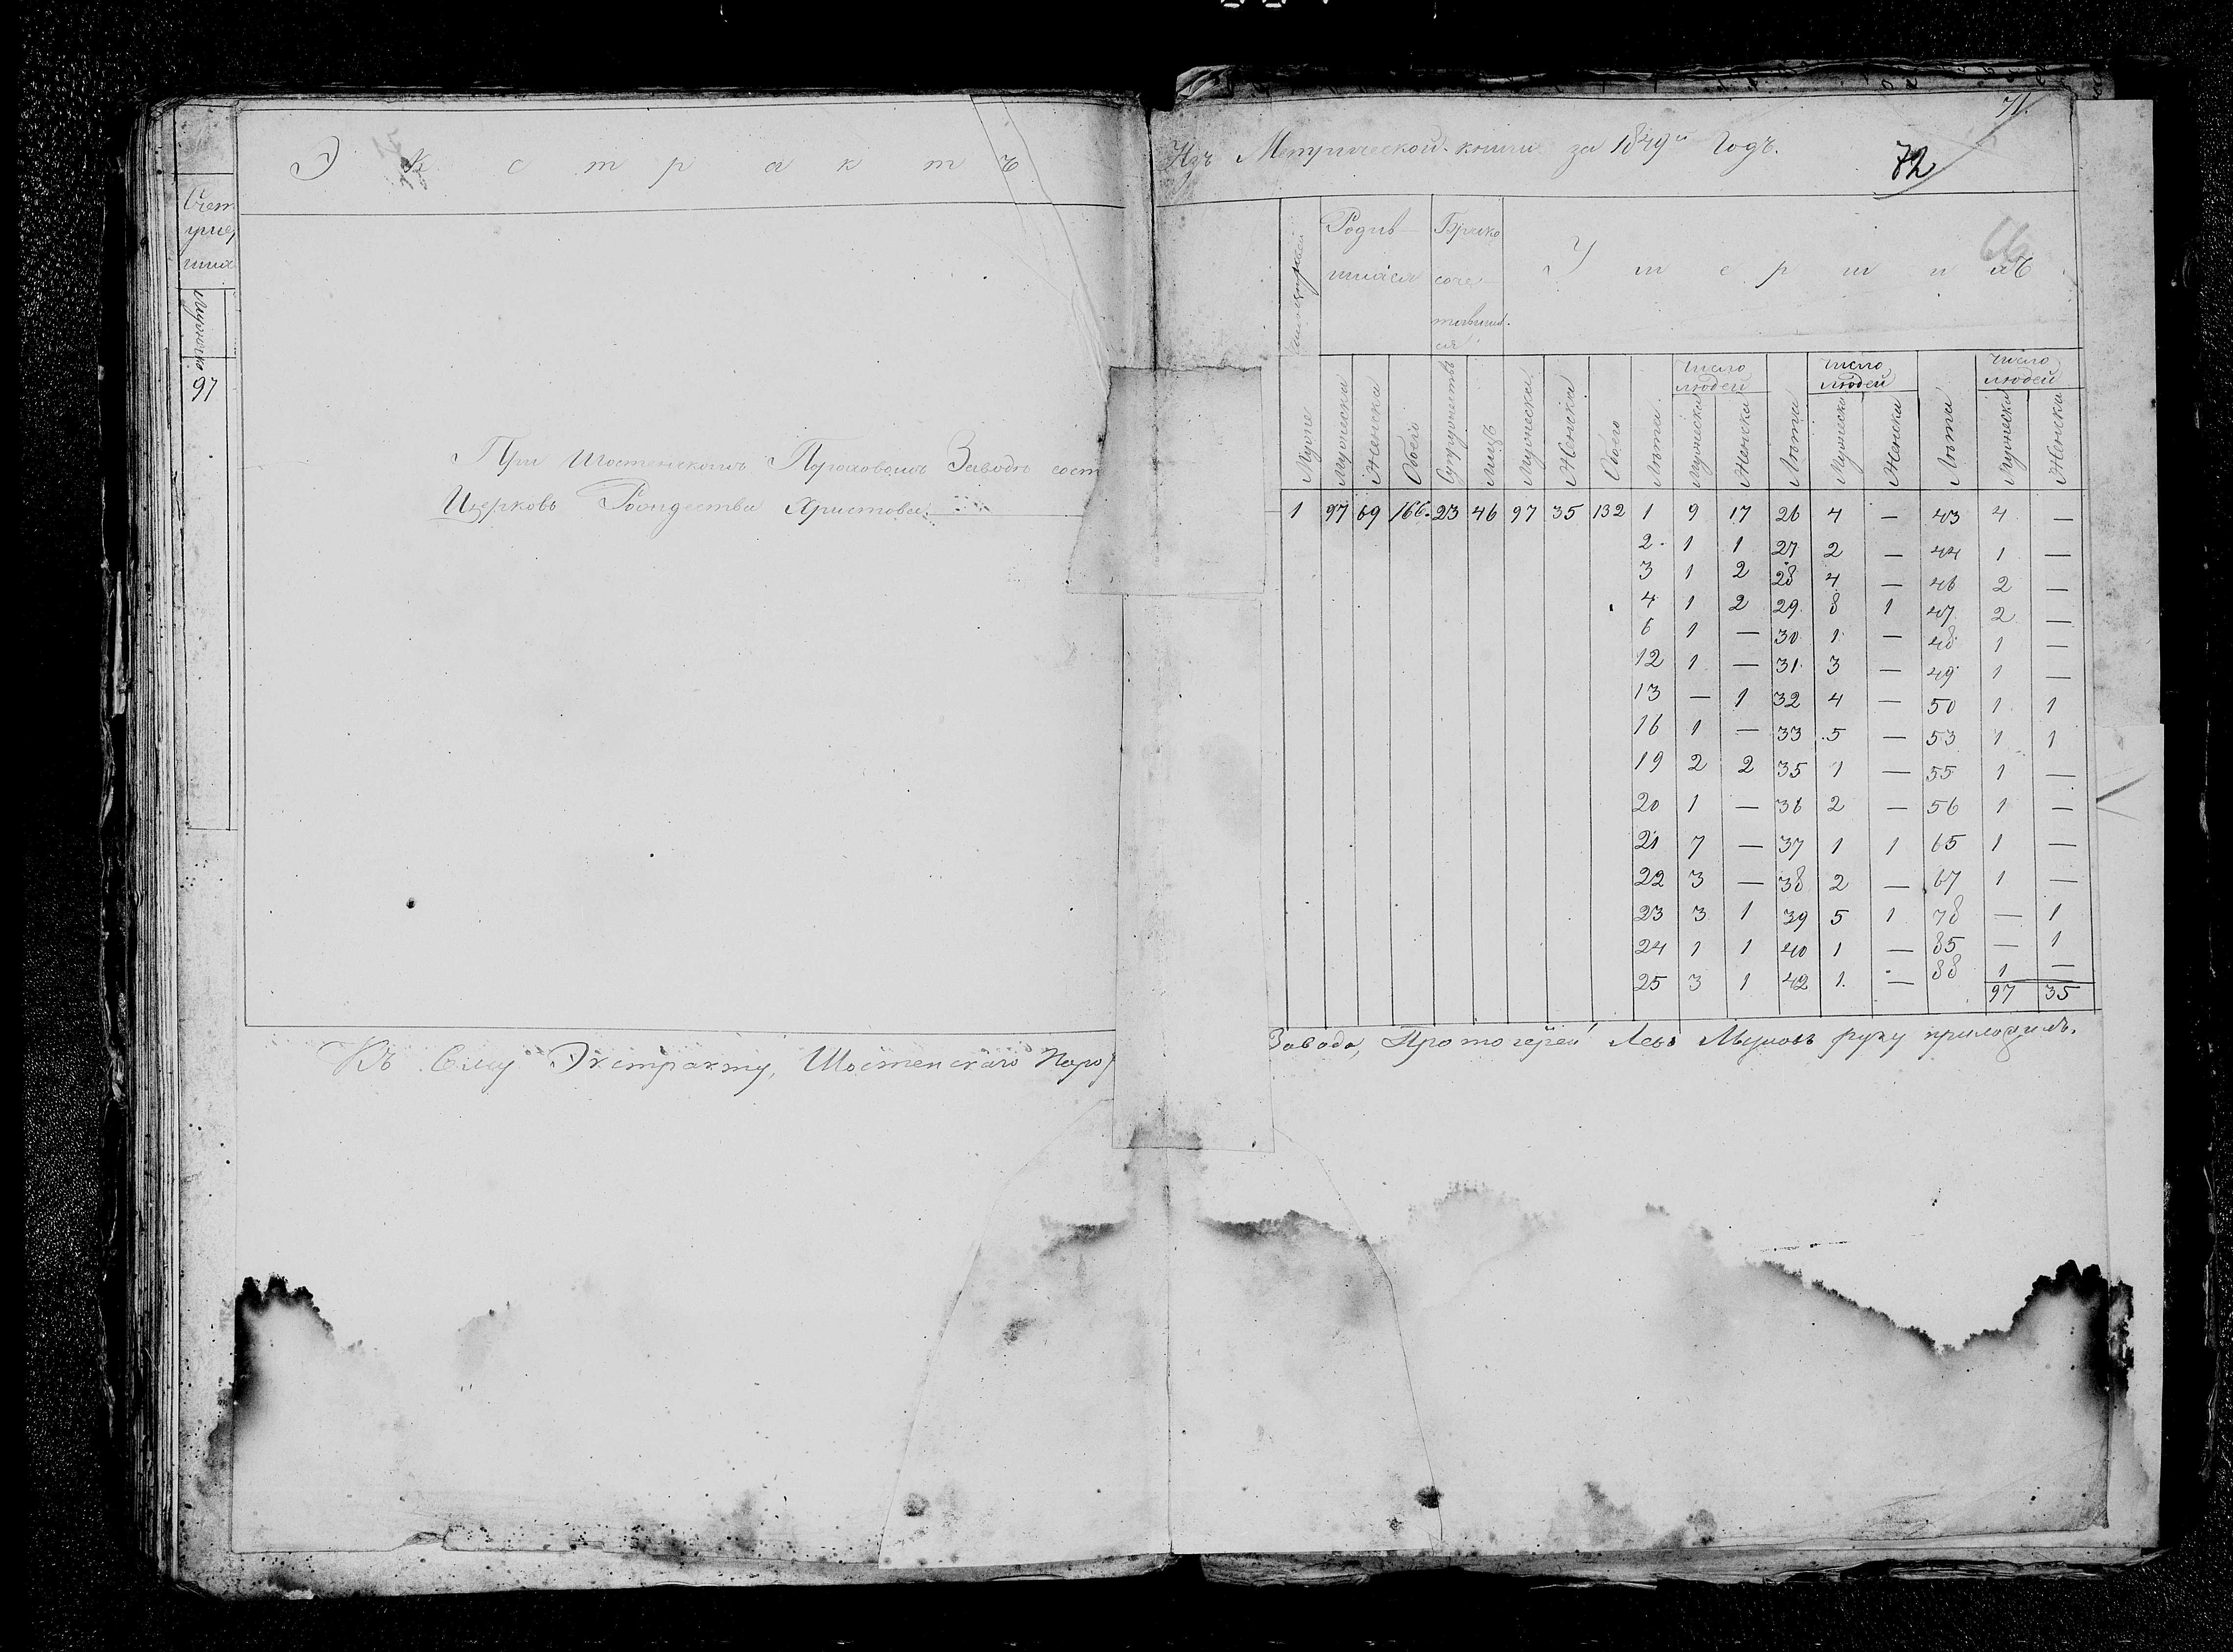 Экстрактъ
Изъ Метрической книги за 1849й Годъ.
71.
72
66
Счет
умер
ших
97
При Шостенскомъ Пороховомъ Заводѣ сост
Церковь Рождества Христова
Родив-
шихся
Брако
соче-
тавших.
ся
Умершихъ
число людей
число людей
число людей
Мужеска
Женска
Обоего
Супружествъ
Лицъ
Мужеска
Женска
Обоего
Лѣта
Мужеска
Женска
Лѣта
Мужеска
Женска
Лѣта
Мужеска
Женска
1 97 69 166. 23 46 97 35 132 1 9 17 26 4 — 43 4 —
2 1 1 27 2 — 44 1 —
3 1 2 28 4 — 46 2 —
4 1 2 29 8 1 47 2 —
6 1 — 30 1 — 48 1 —
12 1 — 31 3 — 49 1 —
13 — 1 32 4 — 50 1 1
16 1 — 33 5 — 53 1 1
19 2 2 35 1 — 55 1 —
20 1 — 36 2 — 56 1 —
21 7 — 37 1 1 65 1 —
22 3 — 38 2 — 67 1 —
23 3 1 39 5 1 78 — 1
24 1 1 40 1 — 85 — 1
25 3 1 42 1 — 88 1 —
97 35
Къ Сему Экстракту, Шостенскаго Поро
Завода, Протоіерей Левъ руку приложилъ.